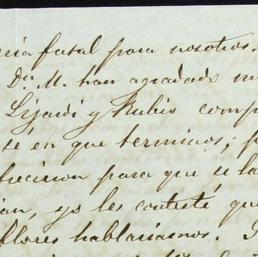 ría fatal para nosotros.
Dn. M. han agradado m
Lijardi y Rubio comp
té en que terminos; p
ducion para que se la
ian, yo les contesté que
flores hablariamos.